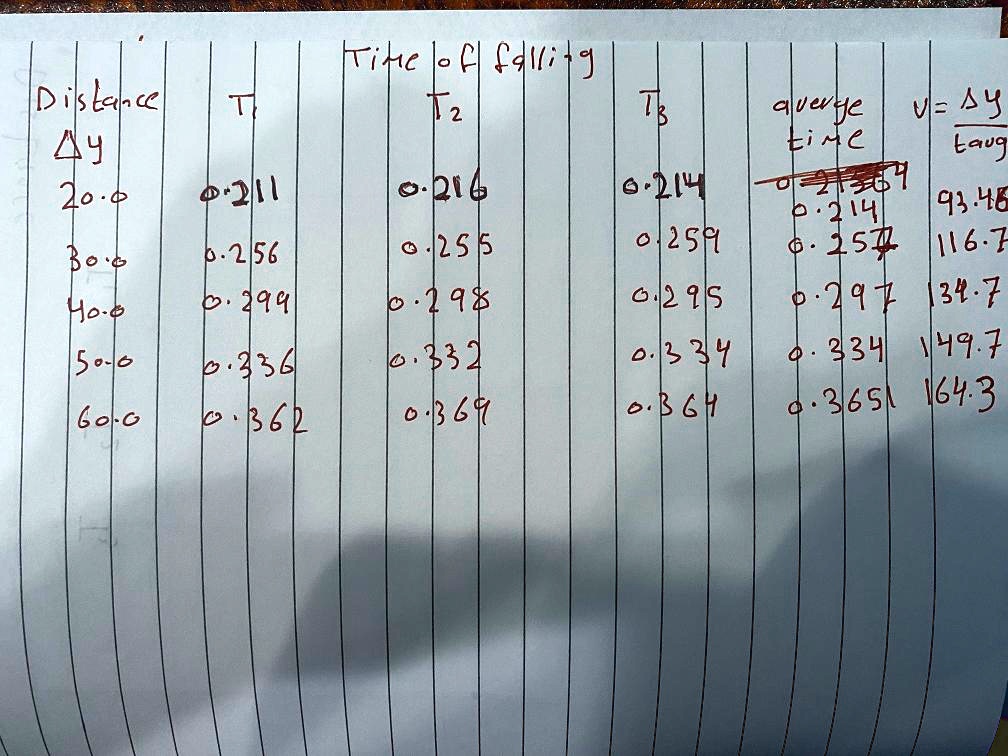 Time of falling
Distance T1 T2 T3 averge time V = Δy / tavg
Δy
20.0 0.211 0.216 0.214 0.214 93.46
30.0 0.256 0.255 0.259 0.257 116.7
40.0 0.299 0.298 0.295 0.297 134.7
50.0 0.336 0.332 0.334 0.334 149.7
60.0 0.362 0.369 0.364 0.3651 164.3